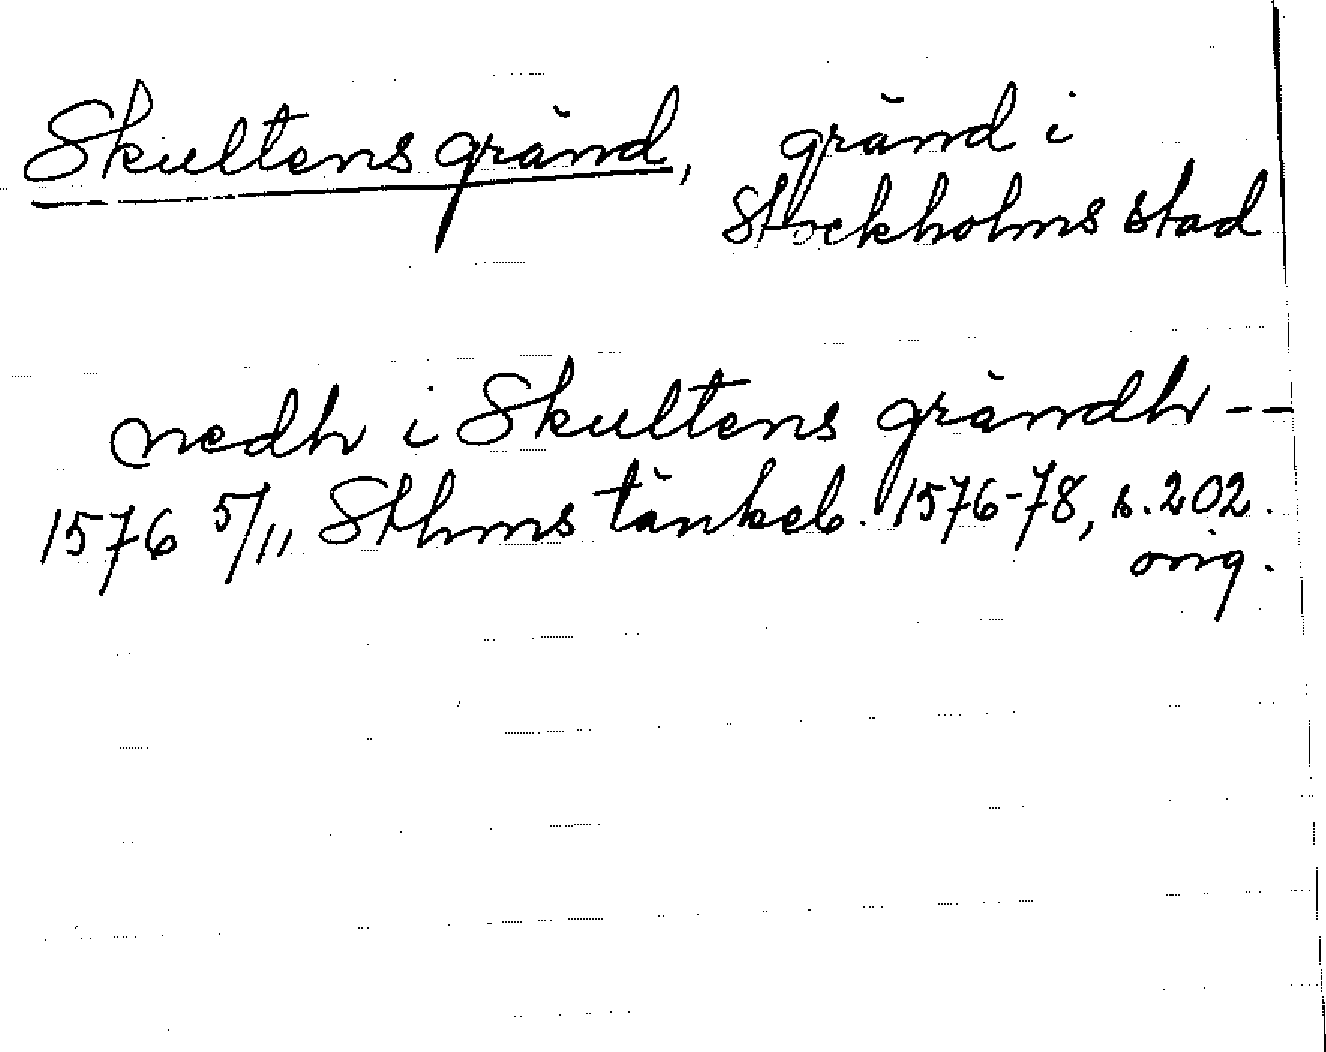 Skultens gränd, gränd i
Stockholms stad
nedh i Skultens grändh --
1576 5/11 Sthms tänkeb. 1576-78, s. 202.
orig.